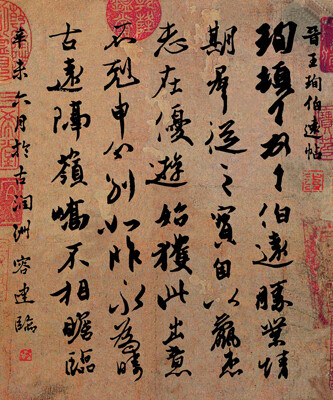 晋王珣伯遠帖
珣頓首頓首伯遠勝業情
期群從之寶自以羸患
志在優遊始獲此出意
不剋申分別如昨永為疇
古遠隔嶺嶠不相瞻臨
辛未六月於古润洲容建臨